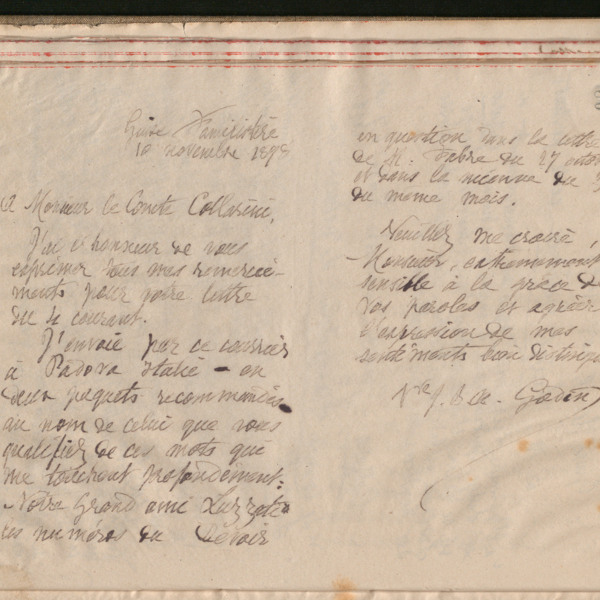 Guise Familistère
10 novembre 189
A Monsieur le Comte Collacini,
J'ai l'honneur de vous
exprimer tous mes remercie-
ments pour votre lettre
du 4 courant.
J'envoie par ce courrier
à Padova Italie - en
deux paquets recommandés
au nom de celui que vous
qualifiez de ces mots qui
me touchent profondément:
Notre Grand ami
les numéros du Devoir
en question dans la lettre
de M. Fabre du 27 octo
et dans la du
du même mois.
Veuillez me croire,
Monsieur, extrêmement
sensible à la grâce de
vos paroles et agréer
l'expression de mes
sentiments bien distingu
Vve J. B. A. Godin